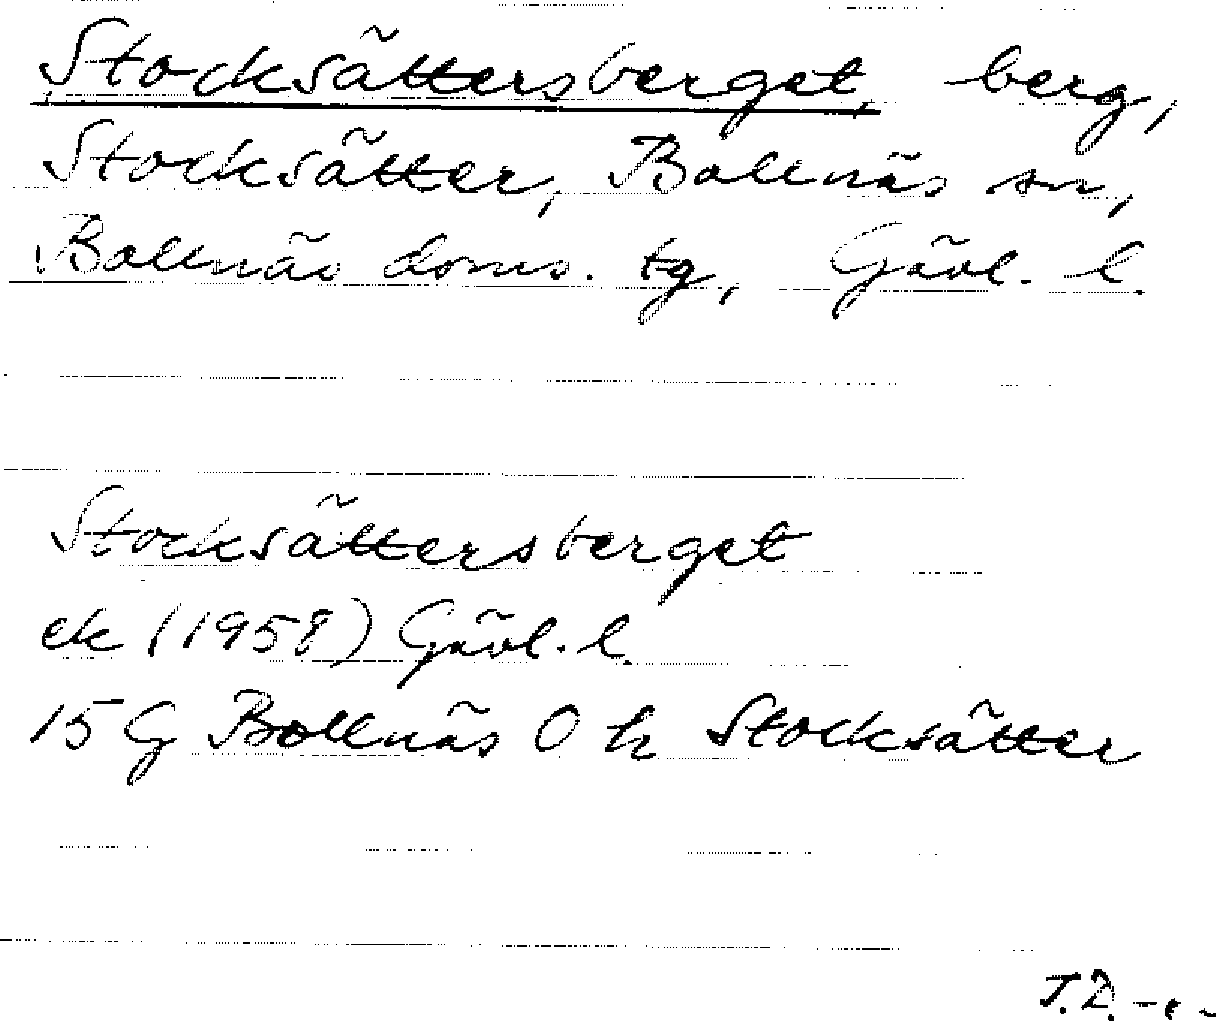 Stocksättersberget, berg,
Stocksätter, Bollnäs sn,
Bollnäs doms. tg, Gävl. l.
Stocksättersberget
ek (1958) Gävl. l.
15 G Bollnäs O h Stocksätter